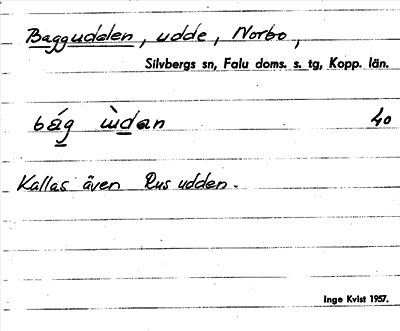 Baggudden, udde, Norbo,
Silvbergs sn, Falu doms. s. tg, Kopp. län.
bág ùdan 40
Kallas även Rusudden.
Inge Kvist 1957.